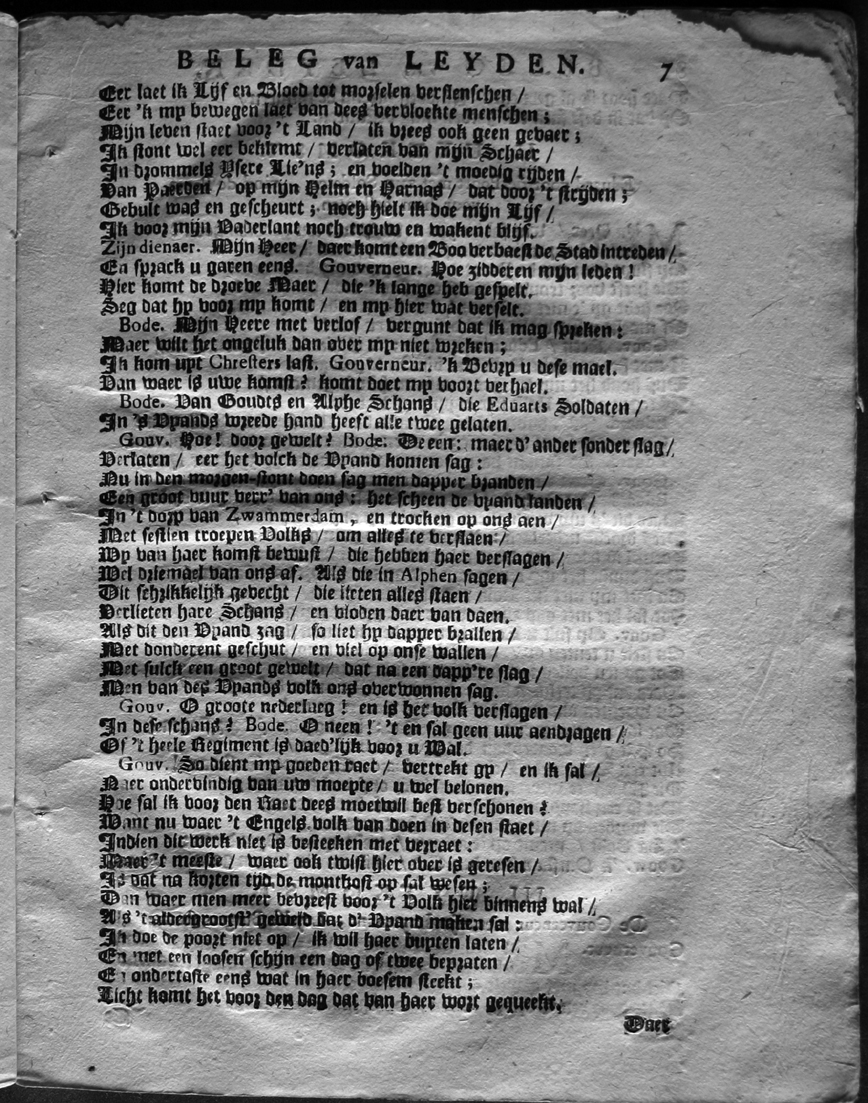 BELEG van LEYDEN. 7
Eer laet ik Lijf en Bloed tot morselen verslenschen /
Eer 'k my bewegen laet van dees vervloekte menschen ;
Mijn leven staet voor 't Land / ik vrees ook geen gevaer ;
Ik stont wel eer beklemt / verlaten van mijn Schaer /
In drommels Ysere Lie'ns ; en voelden 't moedig rijden /
Van Paerden / op mijn Helm en Harnas / dat door 't strijden ;
Gebult was en gescheurt ; noch hielt ik doe mijn Lijf /
Ik voor mijn Vaderlant noch trouw en wakent blijf.
Zijn dienaer. Mijn Heer / daer komt een Boo verbaest de Stad intreden /
En sprack u garen eens. Gouverneur. Hoe zidderen mijn leden !
Hier komt de droeve Maer / die 'k lange heb gespelt.
Seg dat hy voor my komt / en my hier wat verselt.
Bode. Mijn Heere met verlof / vergunt dat ik mag spreken :
Maer wilt het ongeluk dan over my niet wreken ;
Ik kom uyt Chresters last. Gouverneur. 'k Bevry u dese mael.
Van waer is uwe komst ? komt doet my voort verhael.
Bode. Van Goudts en Alphe Schans / die Eduarts Soldaten /
In 's Vyands wreede hand heeft alle twee gelaten.
Gouv. Hoe ! door gewelt ? Bode. De een : maer d' ander sonder slag /
Verlaten / eer het volck de Vyand komen sag :
Nu in den morgen-stont doen sag men dapper branden /
Een groot vuur verr' van ons : het scheen de vyand landen /
In 't dorp van Zwammerdam, en trocken op ons aen /
Met sestien troepen Volks / om alles te verslaen /
Wy van haer komst bewust / die hebben haer verslagen /
Wel driemael van ons af. Als die in Alphen sagen /
Dit schrikkelijk gevecht / die lieten alles staen /
Verlieten hare Schans / en vloden daer van daen.
Als dit den Vyand zag / so liet hy dapper brallen /
Met donderent geschut / en viel op onse wallen /
Met sulck een groot gewelt / dat na een dapp're slag /
Men van des Vyands volk ons overwonnen sag.
Gouv. O groote nederlaeg ! en is het volk verslagen /
In dese schans ? Bode. O neen ! 't en sal geen uur aendragen /
Of 't heele Regiment is daed'lijk voor u Wal.
Gouv. So dient my goeden raet / vertrekt gy / en ik sal /
Naer ondervindig van uw moeyte / u wel belonen.
Hoe sal ik voor den Raet dees moetwil best verschonen ?
Want nu waer 't Engels volk van doen in desen staet /
Indien dit werk niet is besteeken met verraet :
Maer 't meeste / waer ook twist hier over is geresen /
Is dat na korten tijd de montkost op sal wesen ;
Dan waer men meer bevreest voor 't Volk hier binnens wal /
Als 't aldergrootst' geweld dat d' Vyand maken sal :
Ik doe de poort niet op / ik wil haer buyten laten /
En met een loosen schijn een dag of twee bepraten /
En ondertaste eens wat in haer boesem steekt ;
Licht komt het voor den dag dat van haer wort gequeekt.
Daer